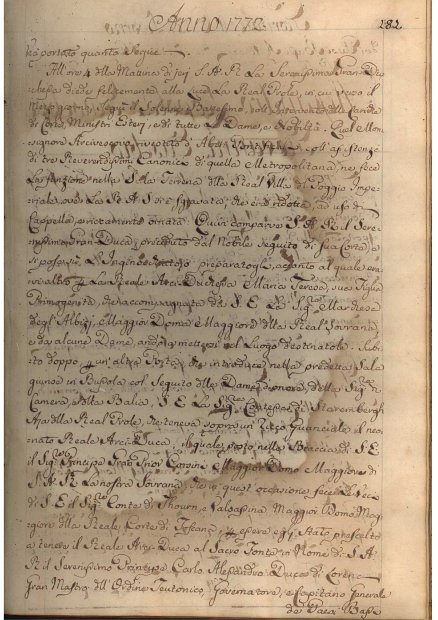 Anno 1772
282
ha portato quanto segue
All'ore 4 della Mattina di jeri S. A. R. La Serenissima Gran Du=
chessa diede felicemente alla Luce La Real Prole, in cui verso il
Mezzo giorno, seguì il Solenne Battesimo coll'Intervento della
di Corte, Ministri Esteri, e di tutte Le Dame, e Nobiltà. Quel Mon=
signore Arcivescovo coll'assistenza
di tre Reverendissimi Canonici di quella Metropolitana, ne fece
La funzione nella Sala Terrena della Real Villa di Poggio Impe=
riale, ove La R. A. S. ad uso di
Cappella, e riccamente ornata: Quivi comparve S. A. R. il Sere=
nissimo Gran-Duca, preceduto dal Nobile Seguito di sua Corte, e
si pose su L'Inginocchiatojo preparatogli, accanto al quale era
un altro La Reale Arci-Duchessa Maria Teresa, sua Figlia
Primogenita, che accompagnata da S. E. La Sig.ra Marchesa
degl'Albizi, Maggior Doma Maggiore della Real Sovrana,
e da alcune Dame, andò a mettersi nel Luogo destinatole. Subi=
to doppo, un'altra Porta, che introduce nella predetta Sala
giunse in Bussola col Seguito delle Dame d'onore, della Sig.ra
Camera, e della Balia, S. E. La Sig.ra Contessa di Starembergh
Aja della Real Prole, che teneva sopra un ricco Guanciale il neo=
nato Reale Arci-Duca, il quale posto nelle Braccia di S. E.
il Sig.r Principe Gran Prior Corsini Maggior Domo Maggiore di
S. A. R. La nostra Sovrana, che in quest'occasione fece Le Veci
di S. E. il Sig.r Conte di Thourn, e Valsassina Maggior Domo Mag=
giore della Reale Corte di Toscana, essere egli stato prescelto
a tenere il Reale Arci-Duca al Sacro Fonte in Nome di S. A.
R. il Serenissimo Principe Carlo Alessandro Duca di Lorena
Gran Mastro dell'Ordine Teutonico, Governatore, e Capitano Generale
de Paesi Bassi